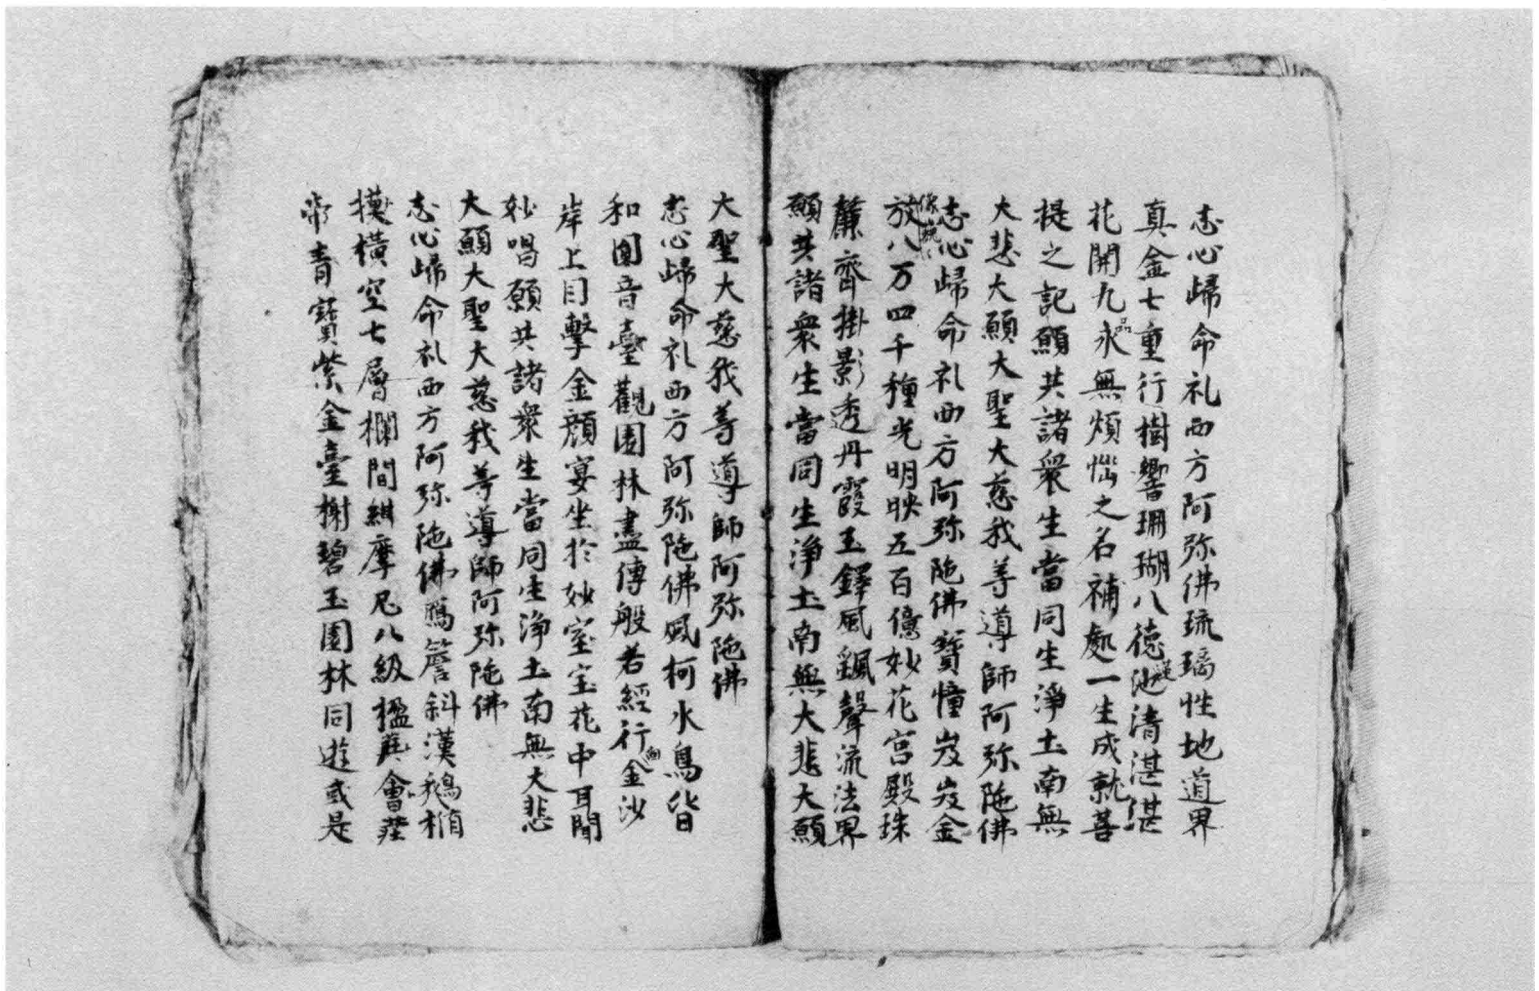 志心歸命礼西方阿弥佛琉璃性地道界
真金七重行樹響珊瑚八德池清湛湛
花開九品永無煩惱之名補處一生成就菩
提之記願共諸衆生當同生淨土南無
大悲大願大聖大慈我等導師阿弥陁佛
志心歸命礼西方阿弥陁佛寶幢岌岌金
放八万四千種光明映五百億妙花宮殿珠
簾齊掛影透丹霞玉鐸風颻聲流法界
願共諸衆生當同生淨土南無大悲大願
大聖大慈我等導師阿弥陁佛
志心歸命礼西方阿弥陁佛風柯水鳥皆
和圓音臺觀園林盡傳般若經行向金沙
岸上目擊金顔宴坐於妙室宝花中耳聞
妙唱願共諸衆生當同生淨土南無大悲
大願大聖大慈我等導師阿弥陁佛
志心歸命礼西方阿弥陁佛鴈簷斜漢
横空七層欄間紺摩尼八級楹
常青寶紫金臺榭碧玉園林同遊或是